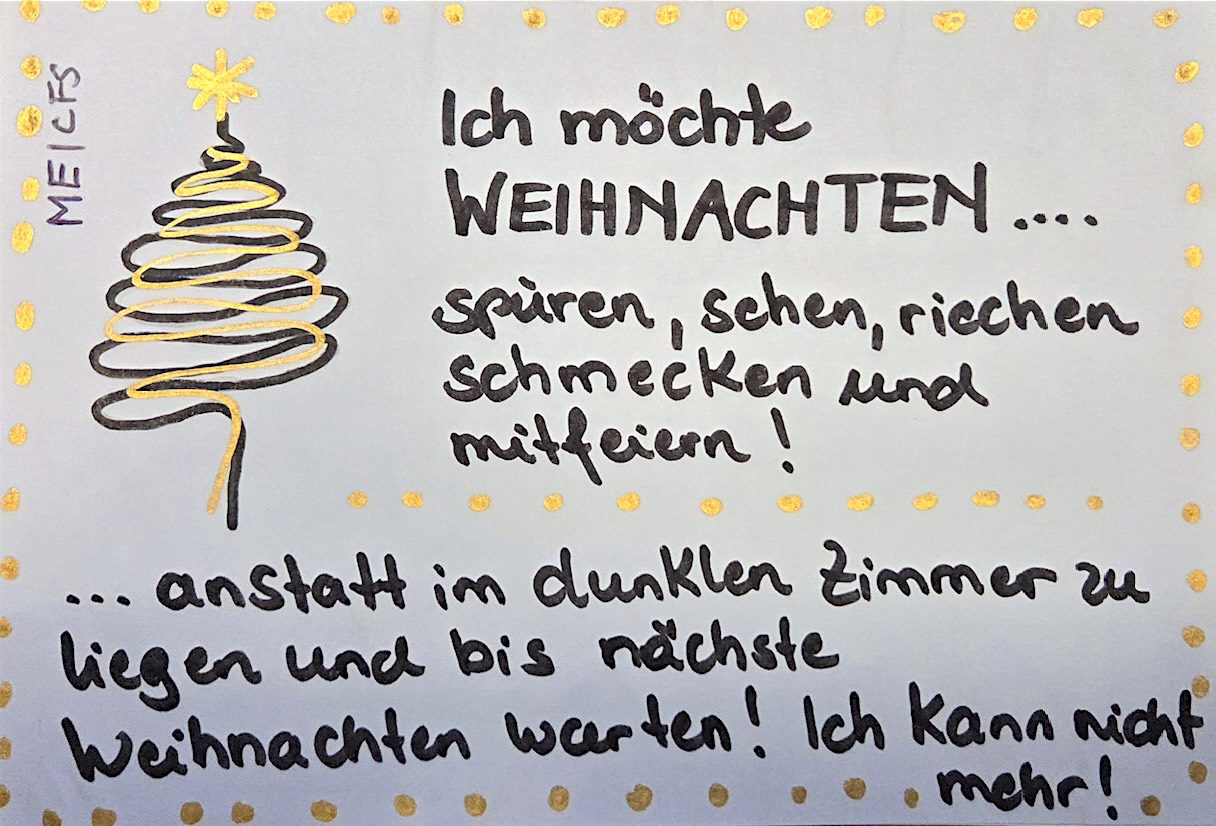 ME/CFS
Ich möchte
WEIHNACHTEN....
spüren, sehen, riechen
schmecken und
mitfeiern!
... anstatt im dunklen Zimmer zu
liegen und bis nächste
Weihnachten warten! Ich kann nicht
mehr!